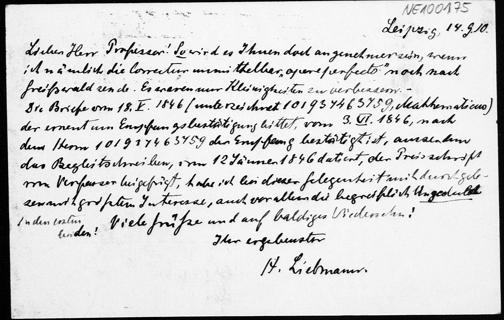 NE100175
Leipzig, 14.9.10.
Lieber Herr Professor! So wird es Ihnen doch angenehmer sein, wenn
ich nämlich die Correctur unmittelbar, "opere perfecto" noch nach
Greifswald sende. Es waren nur Kleinigkeiten zu verbessern.-
Die Briefe vom 18. V. 1846 (unterzeichnet 101937463759, Mathematicus)
der erneut um Empfangsbestätigung bittet, vom 3. VI. 1846, nach
dem Herrn 101937463759 der Empfang bestätigt ist, ausserdem
das Begleitschreiben, vom 12 Jänner 1846 datiert, der Preisschrift
vom Verfasser beigefügt, habe ich bei dieser Gelegenheit auch durchgele-
sen mit grösstem Interesse, auch vor allem die begreiflich Ungeduld
in den ersten
beiden! Viele Grüsse und auf baldiges Wiedersehn!
Ihr ergebenster
H. Liebmann.